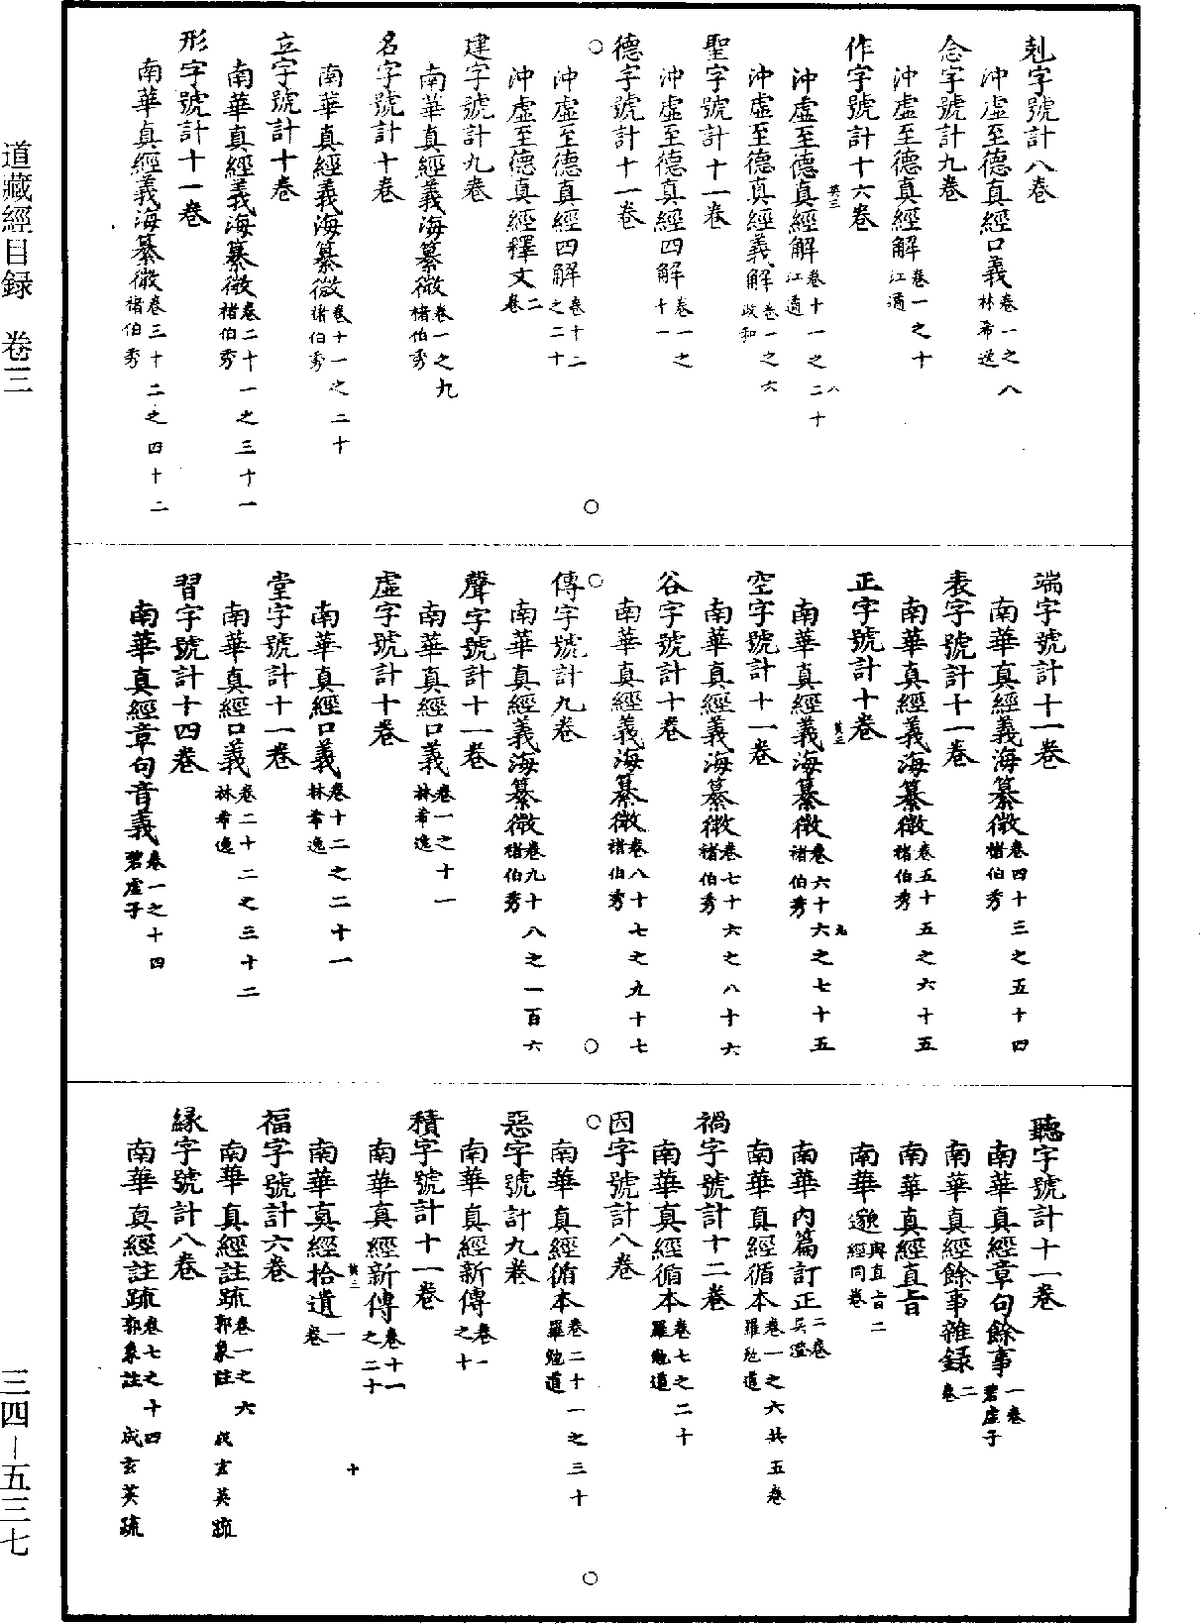 道藏經目録　卷三
剋字號計八卷
沖虛至德真經口義卷一之八林希逸
念字號計九卷
沖虛至德真經解卷一之十江遹
作字號計十六卷
沖虛至德真經解卷十一之二十江遹
沖虛至德真經義解卷一之六政和
聖字號計十一卷
沖虛至德真經四解卷一之十一
德字號計十一卷
沖虛至德真經四解卷十二之二十
沖虛至德真經釋文二卷
建字號計九卷
南華真經義海纂微卷一之九褚伯秀
名字號計十卷
南華真經義海纂微卷十一之二十褚伯秀
立字號計十卷
南華真經義海纂微卷二十一之三十一褚伯秀
形字號計十一卷
南華真經義海纂微卷三十二之四十二褚伯秀
端字號計十一卷
南華真經義海纂微卷四十三之五十四褚伯秀
表字號計十一卷
南華真經義海纂微卷五十五之六十五褚伯秀
正字號計十卷
南華真經義海纂微卷六十六之七十五褚伯秀
空字號計十一卷
南華真經義海纂微卷七十六之八十六褚伯秀
谷字號計十卷
南華真經義海纂微卷八十七之九十七褚伯秀
傳字號計九卷
南華真經義海纂微卷九十八之一百六褚伯秀
聲字號計十一卷
南華真經口義卷一之十一林希逸
虛字號計十卷
南華真經口義卷十二之二十一林希逸
堂字號計十一卷
南華真經口義卷二十二之三十二林希逸
習字號計十四卷
南華真經章句音義卷一之十四碧虛子
聽字號計十一卷
南華真經章句餘事一卷碧虛子
南華真經餘事雜録二卷
南華真經直旨
南華邈與直旨二經同卷
南華內篇訂正二卷吳澄
南華真經循本卷一之六共五卷羅勉道
禍字號計十二卷
南華真經循本卷七之二十羅勉道
因字號計八卷
南華真經循本卷二十一之三十羅勉道
惡字號計九卷
南華真經新傳卷一之十
積字號計十一卷
南華真經新傳卷十一之二十
南華真經拾遺一卷
福字號計六卷
南華真經註疏卷一之六郭象註　成玄英疏
緣字號計八卷
南華真經註疏卷七之十四郭象註　成玄英疏
三四—五三七